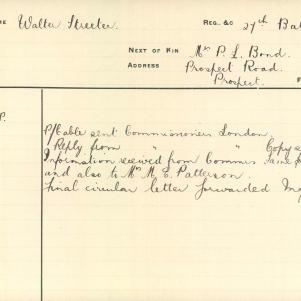 ME Walter Streeter. REG. &C 27th Bat
NEXT OF KIN Mrs P. L. Bond.
ADDRESS Prospect Road.
Prospect. F
P.
P/Cable sent Commissioners London.
Reply from " " Copy s
Information received from Commis. Same
and also to Mrs M. E. Patterson.
Final circular letter forwarded